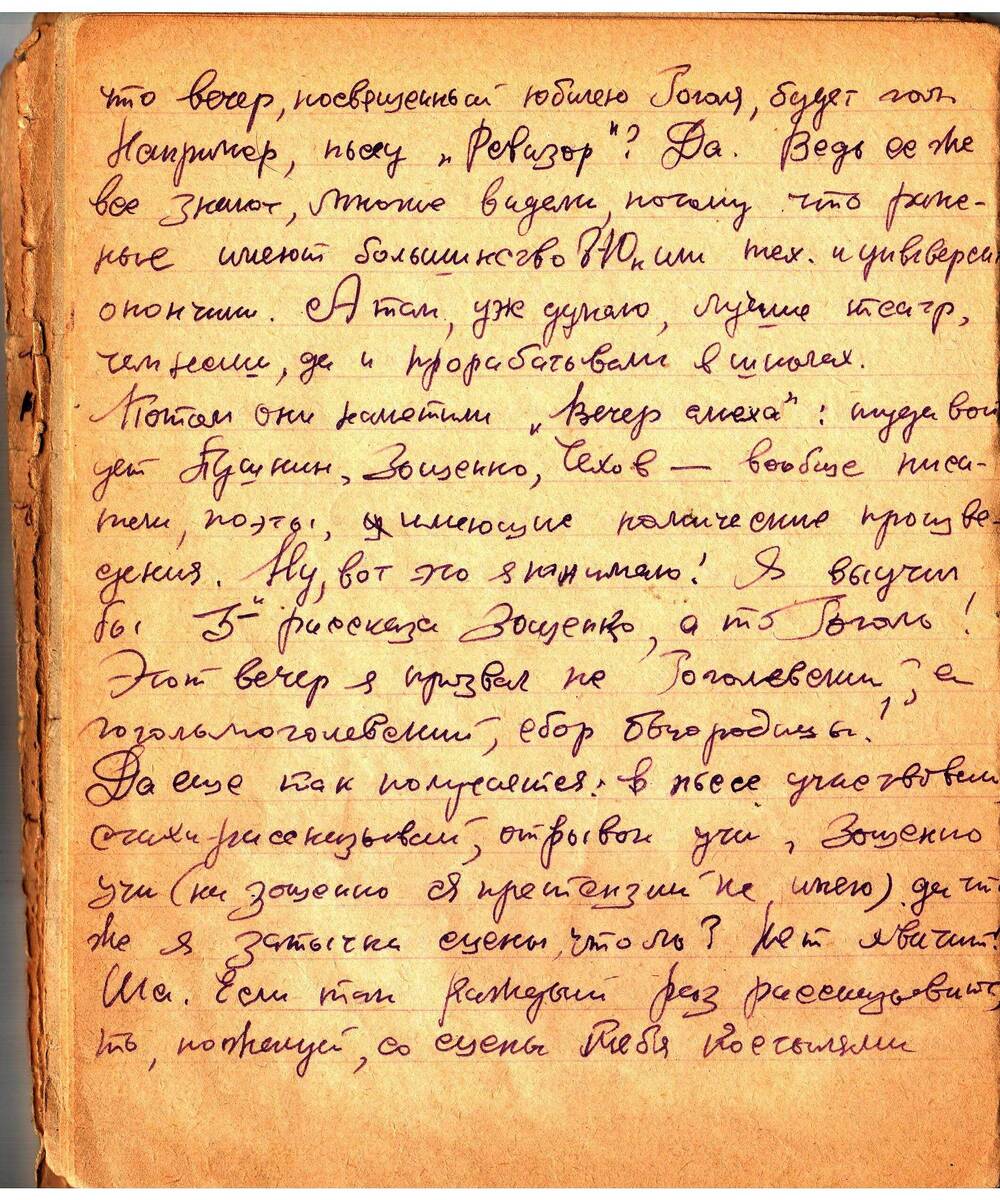 что вечер, посвященный юбилею Гоголя, будет
Например, пьесу „Ревизор"? Да. Ведь ее же
все знают, многие видели, потому что ране-
ные имеют большинство или тех. и универси
окончили. А там, уж думаю, лучше театр,
чем, да и прорабатывали в школах.
Потом они наметили „Вечер смеха": туда вой
дет Пушкин, Зощенко, Чехов — вообще писа-
тели, поэты, имеющие комические произве-
дения. Ну, вот это я понимаю! Я выучил
бы 5" рассказа Зощенко, а то Гоголь!
Этот вечер я призвал не Гоголевский, а
гогольмоголевский, сбор!
Да еще так получается: в пьесе участвовал
стихи рассказывай, отрывок учи, Зощенко
учи (на Зощенко я претензий не имею) да что
же я затычка сцены, что ль? Нет
Ша. Если так каждый раз рассказывать
то, пожалуй, со сцены тебя костылями